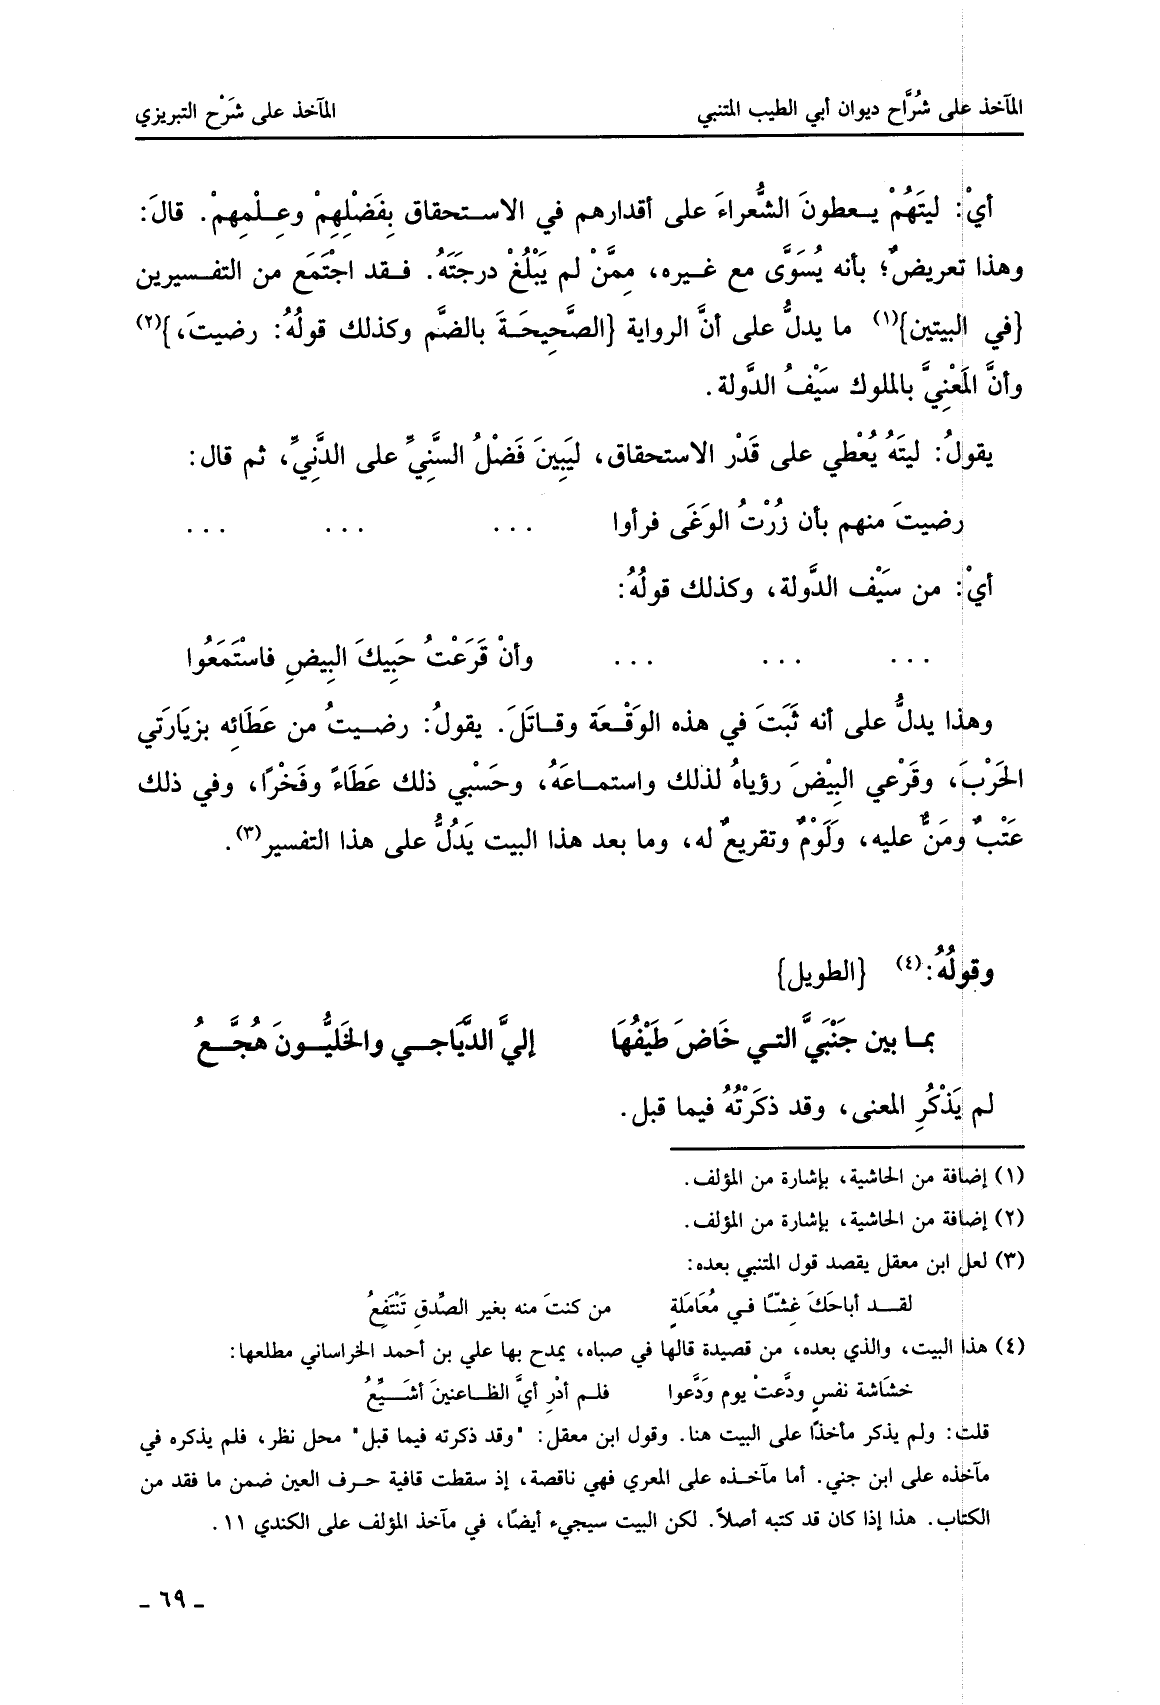 المآخذ على شُرَّاح ديوان أبي الطيب المتنبي
المآخذ على شَرْح التبريزي
أيْ: ليتَهُمْ يـعطونَ الشُّعراءَ على أقدارهم في الاسـتحقاق بِفَضْلِهِمْ وعِـلْمِهِمْ. قالَ:
وهذا تعريضٌ؛ بأنه يُسَوَّى مع غـيره، مِمَّنْ لم يَبْلُغْ درجتَهُ. فـقد اجتَمَع من التفـسيرين
{في البيتين}(١) ما يدلُّ على أنَّ الرواية {الصَّحِيحَـةَ بالضَّم وكذلك قولُهُ: رضيتَ،}(٢)
وأنَّ المَعْنِيَّ بالملوك سَيْفُ الدَّولة.
يقولُ: ليتَهُ يُعْطي على قَدْر الاستحقاق، ليَبِينَ فَضْلُ السَّنِيِّ على الدَّنِيِّ، ثم قال:
رضيتَ منهم بأن زُرْتُ الوَغَى فرأوا ... ... ...
أيْ: من سَيْف الدَّولة، وكذلك قولُهُ:
... ... ... وأنْ قَرَعْتُ حَبِيكَ البِيضِ فاسْتَمَعُوا
وهذا يدلُّ على أنه ثَبَتَ في هذه الوَقْـعَة وقـاتَلَ. يقولُ: رضـيتُ من عَطَائِه بزيَارَتي
الحَرْبَ، وقَرْعي البِيْضَ رؤياهُ لذلك واستمـاعَهُ، وحَسْبي ذلك عَطَاءً وفَخْرًا، وفي ذلك
عَتْبٌ ومَنٌّ عليه، ولَوْمٌ وتقريعٌ له، وما بعد هذا البيت يَدُلُّ على هذا التفسير(٣).
وقولُهُ:(٤) {الطويل}
بمـا بين جَنْبَيَّ التـي خَاضَ طَيْفُهَا إليَّ الدَّيَاجـي والخَليُّـونَ هُجَّـعُ
لم يَذْكُرِ المعنى، وقد ذكَرْتُهُ فيما قبل.
(١) إضافة من الحاشية، بإشارة من المؤلف.
(٢) إضافة من الحاشية، بإشارة من المؤلف.
(٣) لعل ابن معقل يقصد قول المتنبي بعده:
لقـد أباحَكَ غِشّـًا فـي مُعَامَلَةٍ من كنتَ منه بغير الصِّدقِ تَنْتَفِعُ
(٤) هذا البيت، والذي بعده، من قصيدة قالها في صباه، يمدح بها علي بن أحمد الخراساني مطلعها:
حُشَاشة نفسٍ ودَّعتْ يوم وَدَّعوا فلـم أدْرِ أيَّ الظـاعنينَ أشَـيِّعُ
قلت: ولم يذكر مأخذًا على البيت هنا. وقول ابن معقل: "وقد ذكرته فيما قبل" محل نظر، فلم يذكره في
مآخذه على ابن جني. أما مآخـذه على المعري فهي ناقصة، إذ سقطت قافية حـرف العين ضمن ما فقد من
الكتاب. هذا إذا كان قد كتبه أصلاً. لكن البيت سيجيء أيضًا، في مآخذ المؤلف على الكندي ١١.
ـ ٦٩ ـ